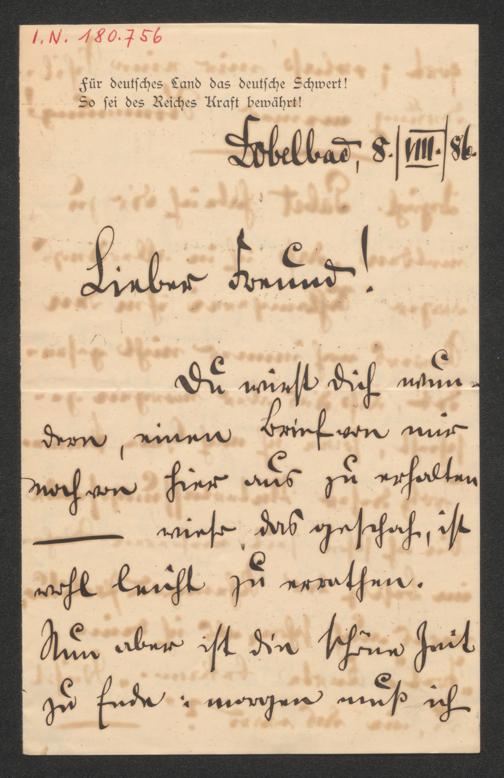 I.N. 180.756
Für deutsches Land das deutsche Schwert!
So sei des Reiches Kraft bewährt!
Tobelbad, 8./VIII./86.
Lieber Freund!
Du wirst Dich wun-
dern, einen Brief von mir
noch von hier aus zu erhalten
— wieso das geschah, ist
wohl leicht zu errathen.
Nun aber ist die schöne Zeit
zu Ende: morgen muß ich